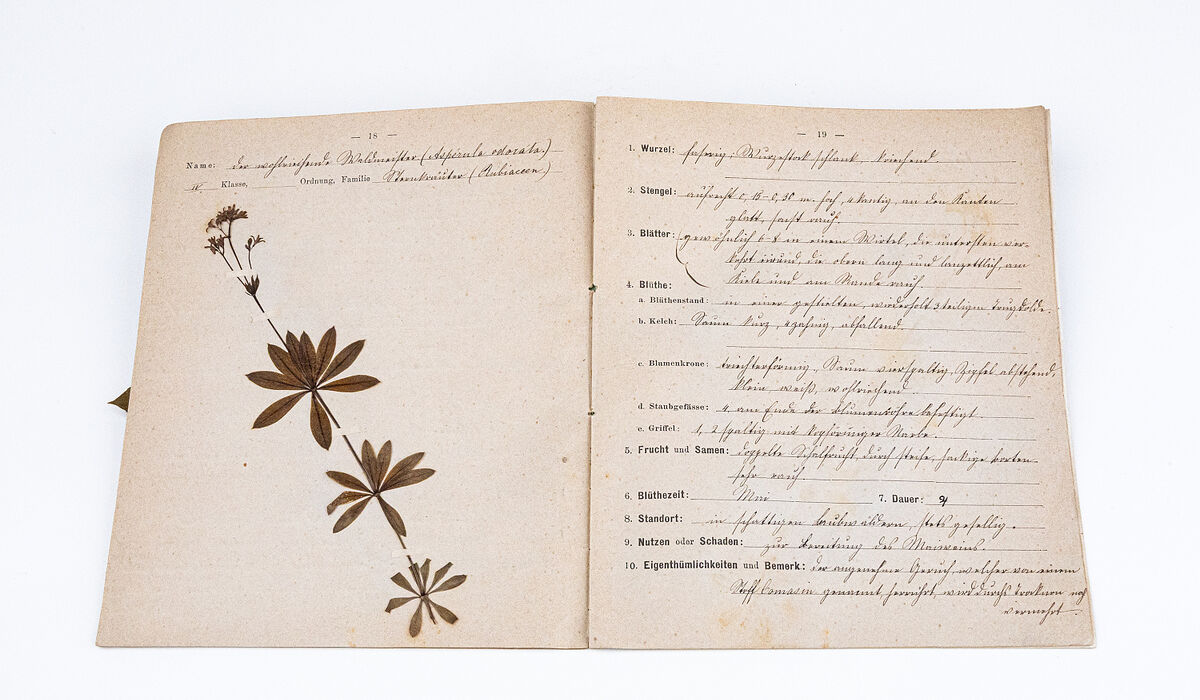 — 18 —
Name: der wohlriechende Waldmeister (Asperula odorata.)
IV Klasse, Ordnung, Familie Sternkräuter (Rubiaceen)
— 19 —
1. Wurzel: faserig, Wurzelstock schlank kriechend.
2. Stengel: aufrecht 0,15-0,30 m. hoch, 4kantig, an den Kanten
glatt, sonst rauh.
3. Blätter: gewöhnlich 6-8 in einem Wirtel, die untersten ver-
kehrt eirund, die obern lang und lanzettlich, am
Kiele und am Rande rauh.
4. Blüthe:
a. Blüthenstand: in einer gestielten, wiederholt 3teiligen Trugdolde.
b. Kelch: Saum kurz, 4zähnig, abfallend.
c. Blumenkrone: trichterförmig, Saum vierspaltig, Zipfel abstehend,
klein weiß, wohlriechend.
d. Staubgefässe: 4. am Ende der Blumenröhre befestigt.
e. Griffel: 1, 2spaltig mit kopfförmiger Narbe.
5. Frucht und Samen: doppelte Spaltfrucht, durch steife, hackige Borsten
sehr rauh.
6. Blüthezeit: Mai 7. Dauer: ♃
8. Standort: in schattigen Laubwäldern, stets gesellig.
9. Nutzen oder Schaden: zur Bereitung des Maiweins.
10. Eigenthümlichkeiten und Bemerk: der angenehme Geruch, welcher von einem
Stoff Comasin genannt, herrührt, wird durchs Trocknen noch
vermehrt.